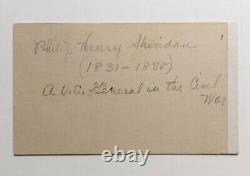 Philip Henry Sheridan
(1831-1888)
A U.S. General in the Civil
War